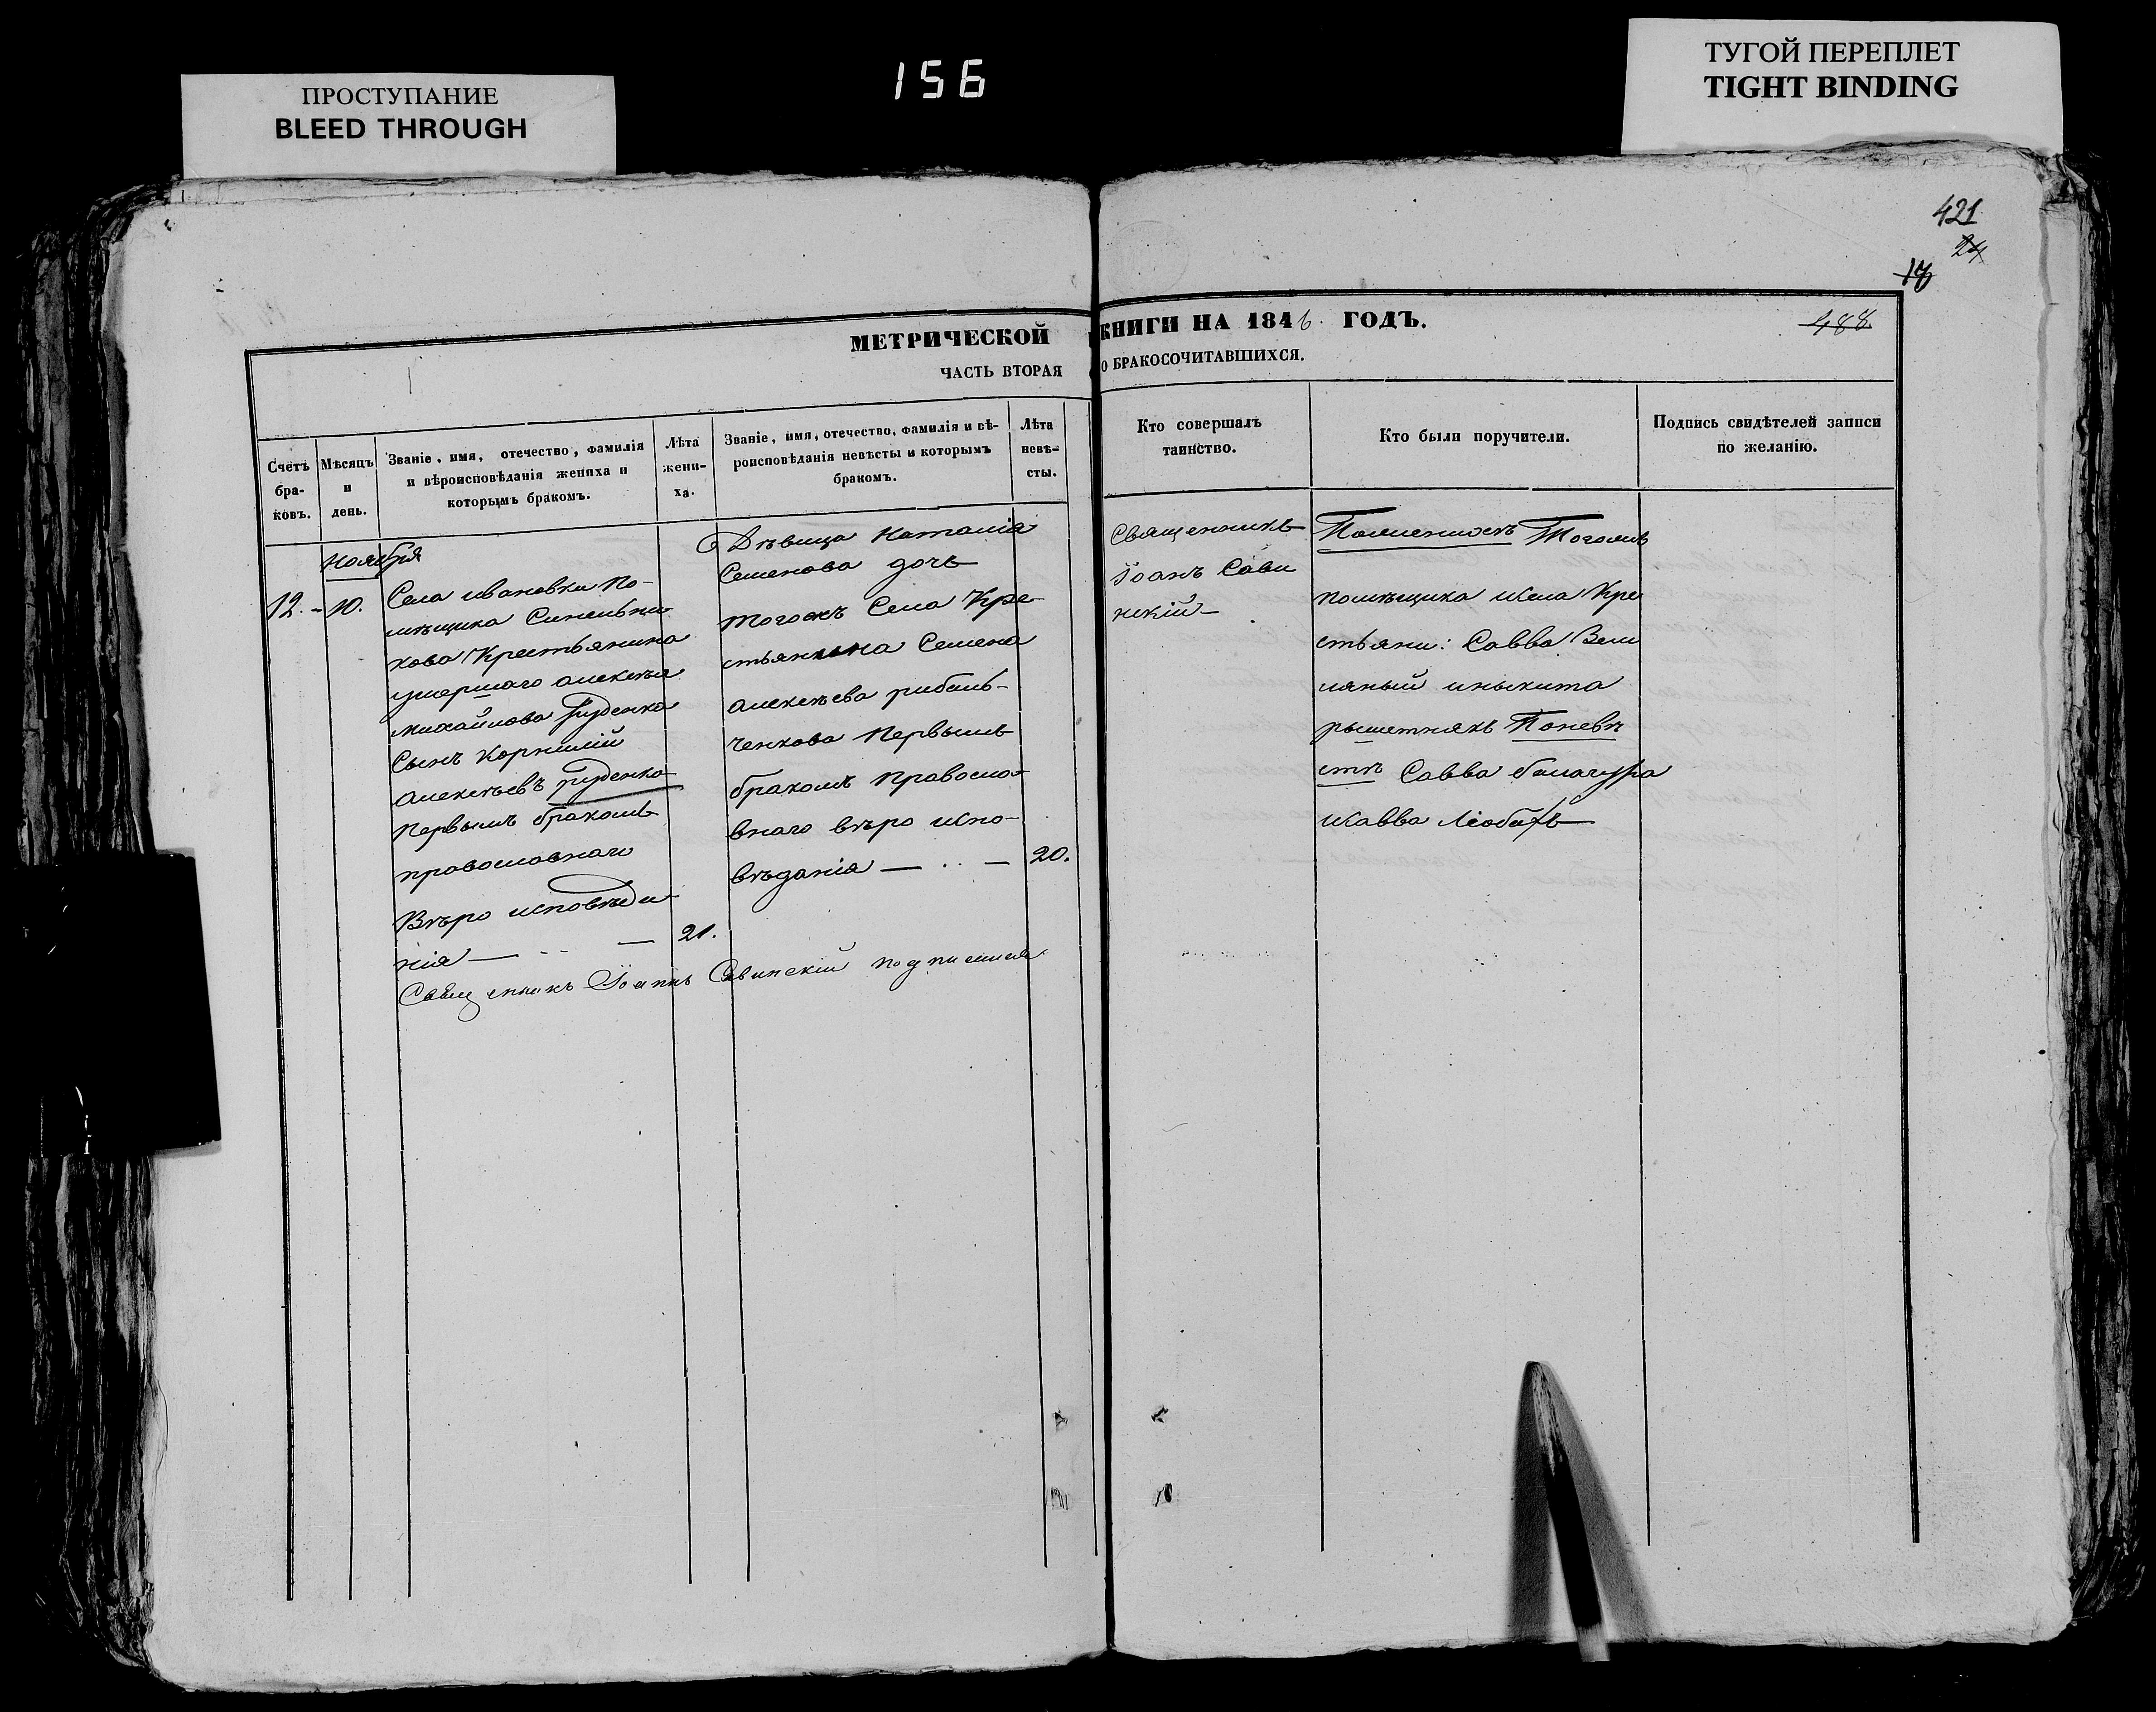 ПРОСТУПАНИЕ
BLEED THROUGH
156
ТУГОЙ ПЕРЕПЛЕТ
TIGHT BINDING
421
24
488.
МЕТРИЧЕСКОЙ КНИГИ НА 1846. ГОДЪ.
ЧАСТЬ ВТОРАЯ О БРАКОСОЧИТАВШИХСЯ.
Счетъ
бра-
ковъ.
Мѣсяцъ
и
день.
Званіе, имя, отечество, фамилія
и вѣроисповѣданія жениха и
которымъ бракомъ.
Лѣта
жени-
ха.
Званіе, имя, отечество, фамилія и вѣ-
роисповѣданія невѣсты и которымъ
бракомъ.
Лѣта
невѣ-
сты.
Кто совершалъ
таинство.
Кто были поручители.
Подпись свидѣтелей записи
по желанію.
Ноября
12. - 10.
Села ивановки По-
мѣщика Синельни
кова Крестьянина
умершаго алексѣя
михайлова Руденка
Сынъ Корнилій
алексѣевъ руденко
Первымъ бракомъ
православнаго
Вѣро исповѣда
нія — 21.
Дѣвица Наталія
Семенова дочь
тогожъ Села Кре-
стьянина Семена
алексѣева рибаль-
ченкова Первымъ
бракомъ Правосла
внаго вѣро испо-
вѣданія — 20.
Священникъ Іоаннъ Савинскій подписался
Священникъ
Іоанъ Сави
нскій
Поженихѣ Тогожъ
помѣщика исела Кре
стьяни: Савва Вели
иникита
рышетнякъ Поневѣ
стѣ Савва балагура
исавва